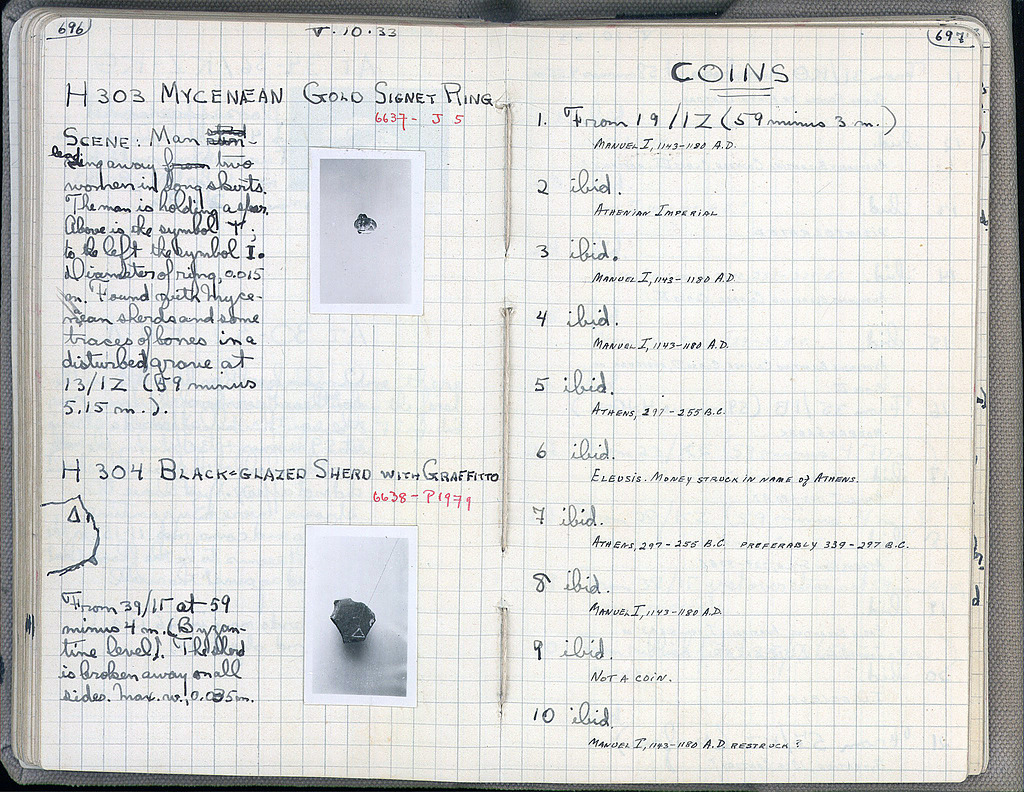 696
V·10·33
H 303 MYCENÆAN GOLD SIGNET RING
6637- J 5
SCENE: Man
leading away two
women in long skirts.
The man is holding a spear.
Above is the symbol
to the left the symbol I.
Diameter of ring, 0.015
m. Found with Myce-
nean sherds and some
traces of bones in a
disturbed grave at
13/ΙΖ (59 minus
5.15 m.).
H 304 BLACK-GLAZED SHERD WITH GRAFFITTO
6638-P1979
Δ
From 39/ at 59
minus 4 m. (Byzan-
tine level). The sherd
is broken away on all
sides. Max. w., 0.035 m.
697
COINS
1. From 19/ΙΖ (59 minus 3 m.)
MANUEL I, 1143-1180 A.D.
2 ibid.
ATHENIAN IMPERIAL
3 ibid.
MANUEL I, 1143-1180 A.D.
4 ibid.
MANUEL I, 1143-1180 A.D.
5 ibid.
ATHENS, 297-255 B.C.
6 ibid.
ELEUSIS. MONEY STRUCK IN NAME of ATHENS.
7 ibid.
ATHENS, 297-255 B.C. PREFERABLY 339-297 B.C.
8 ibid.
MANUEL I, 1143-1180 A.D.
9 ibid.
NOT A COIN.
10 ibid.
MANUEL I, 1143-1180 A.D. RESTRUCK?